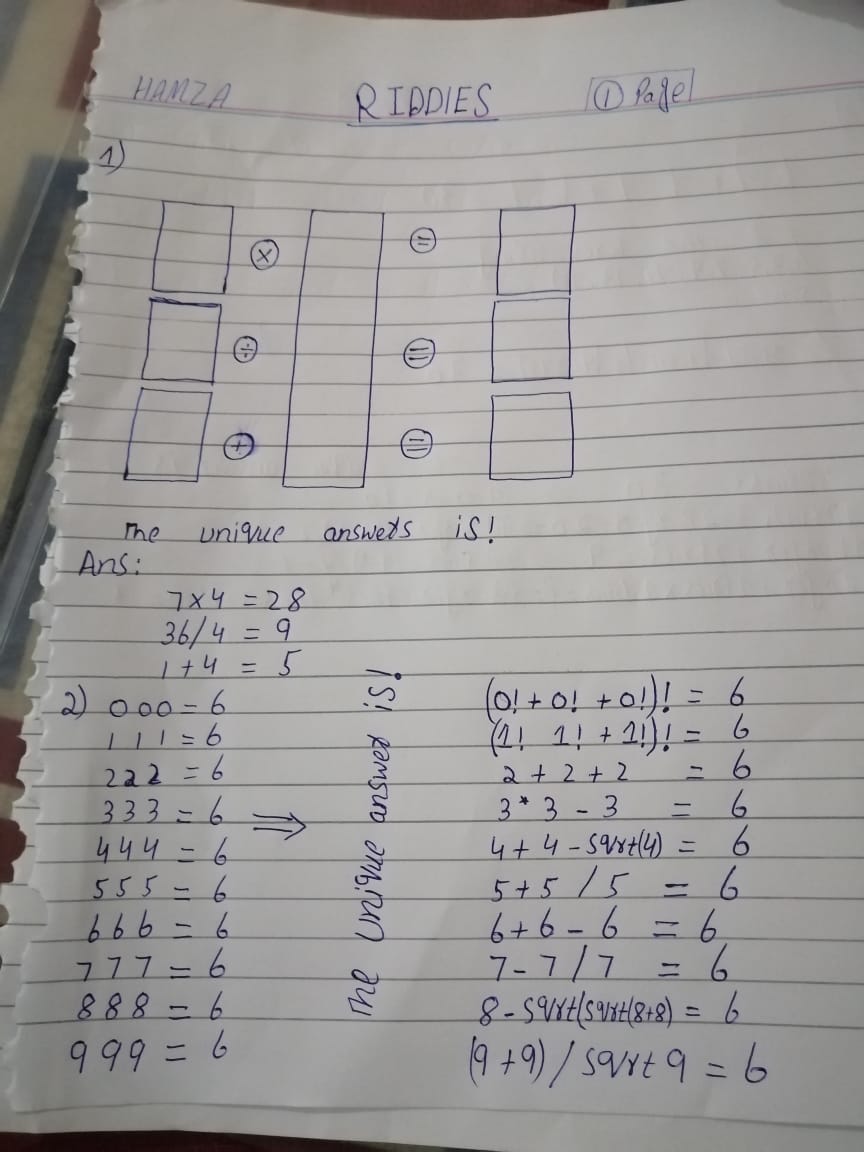 HAMZA RIDDIES ① Page
1)
× =
÷ =
+ =
The unique answers is!
Ans:
7x4 = 28
36/4 = 9
1+4 = 5
2) 000 = 6
111 = 6
222 = 6
333 = 6
444 = 6
555 = 6
666 = 6
777 = 6
888 = 6
999 = 6
⇒
The unique answer is!
(0! + 0! + 0!)! = 6
(1! 1! + 1!)! = 6
2 + 2 + 2 = 6
3* 3 - 3 = 6
4 + 4 - sqrt(4) = 6
5+5 / 5 = 6
6+6 - 6 = 6
7-7/7 = 6
8-sqrt(sqrt(8+8) = 6
(9+9)/sqrt 9 = 6